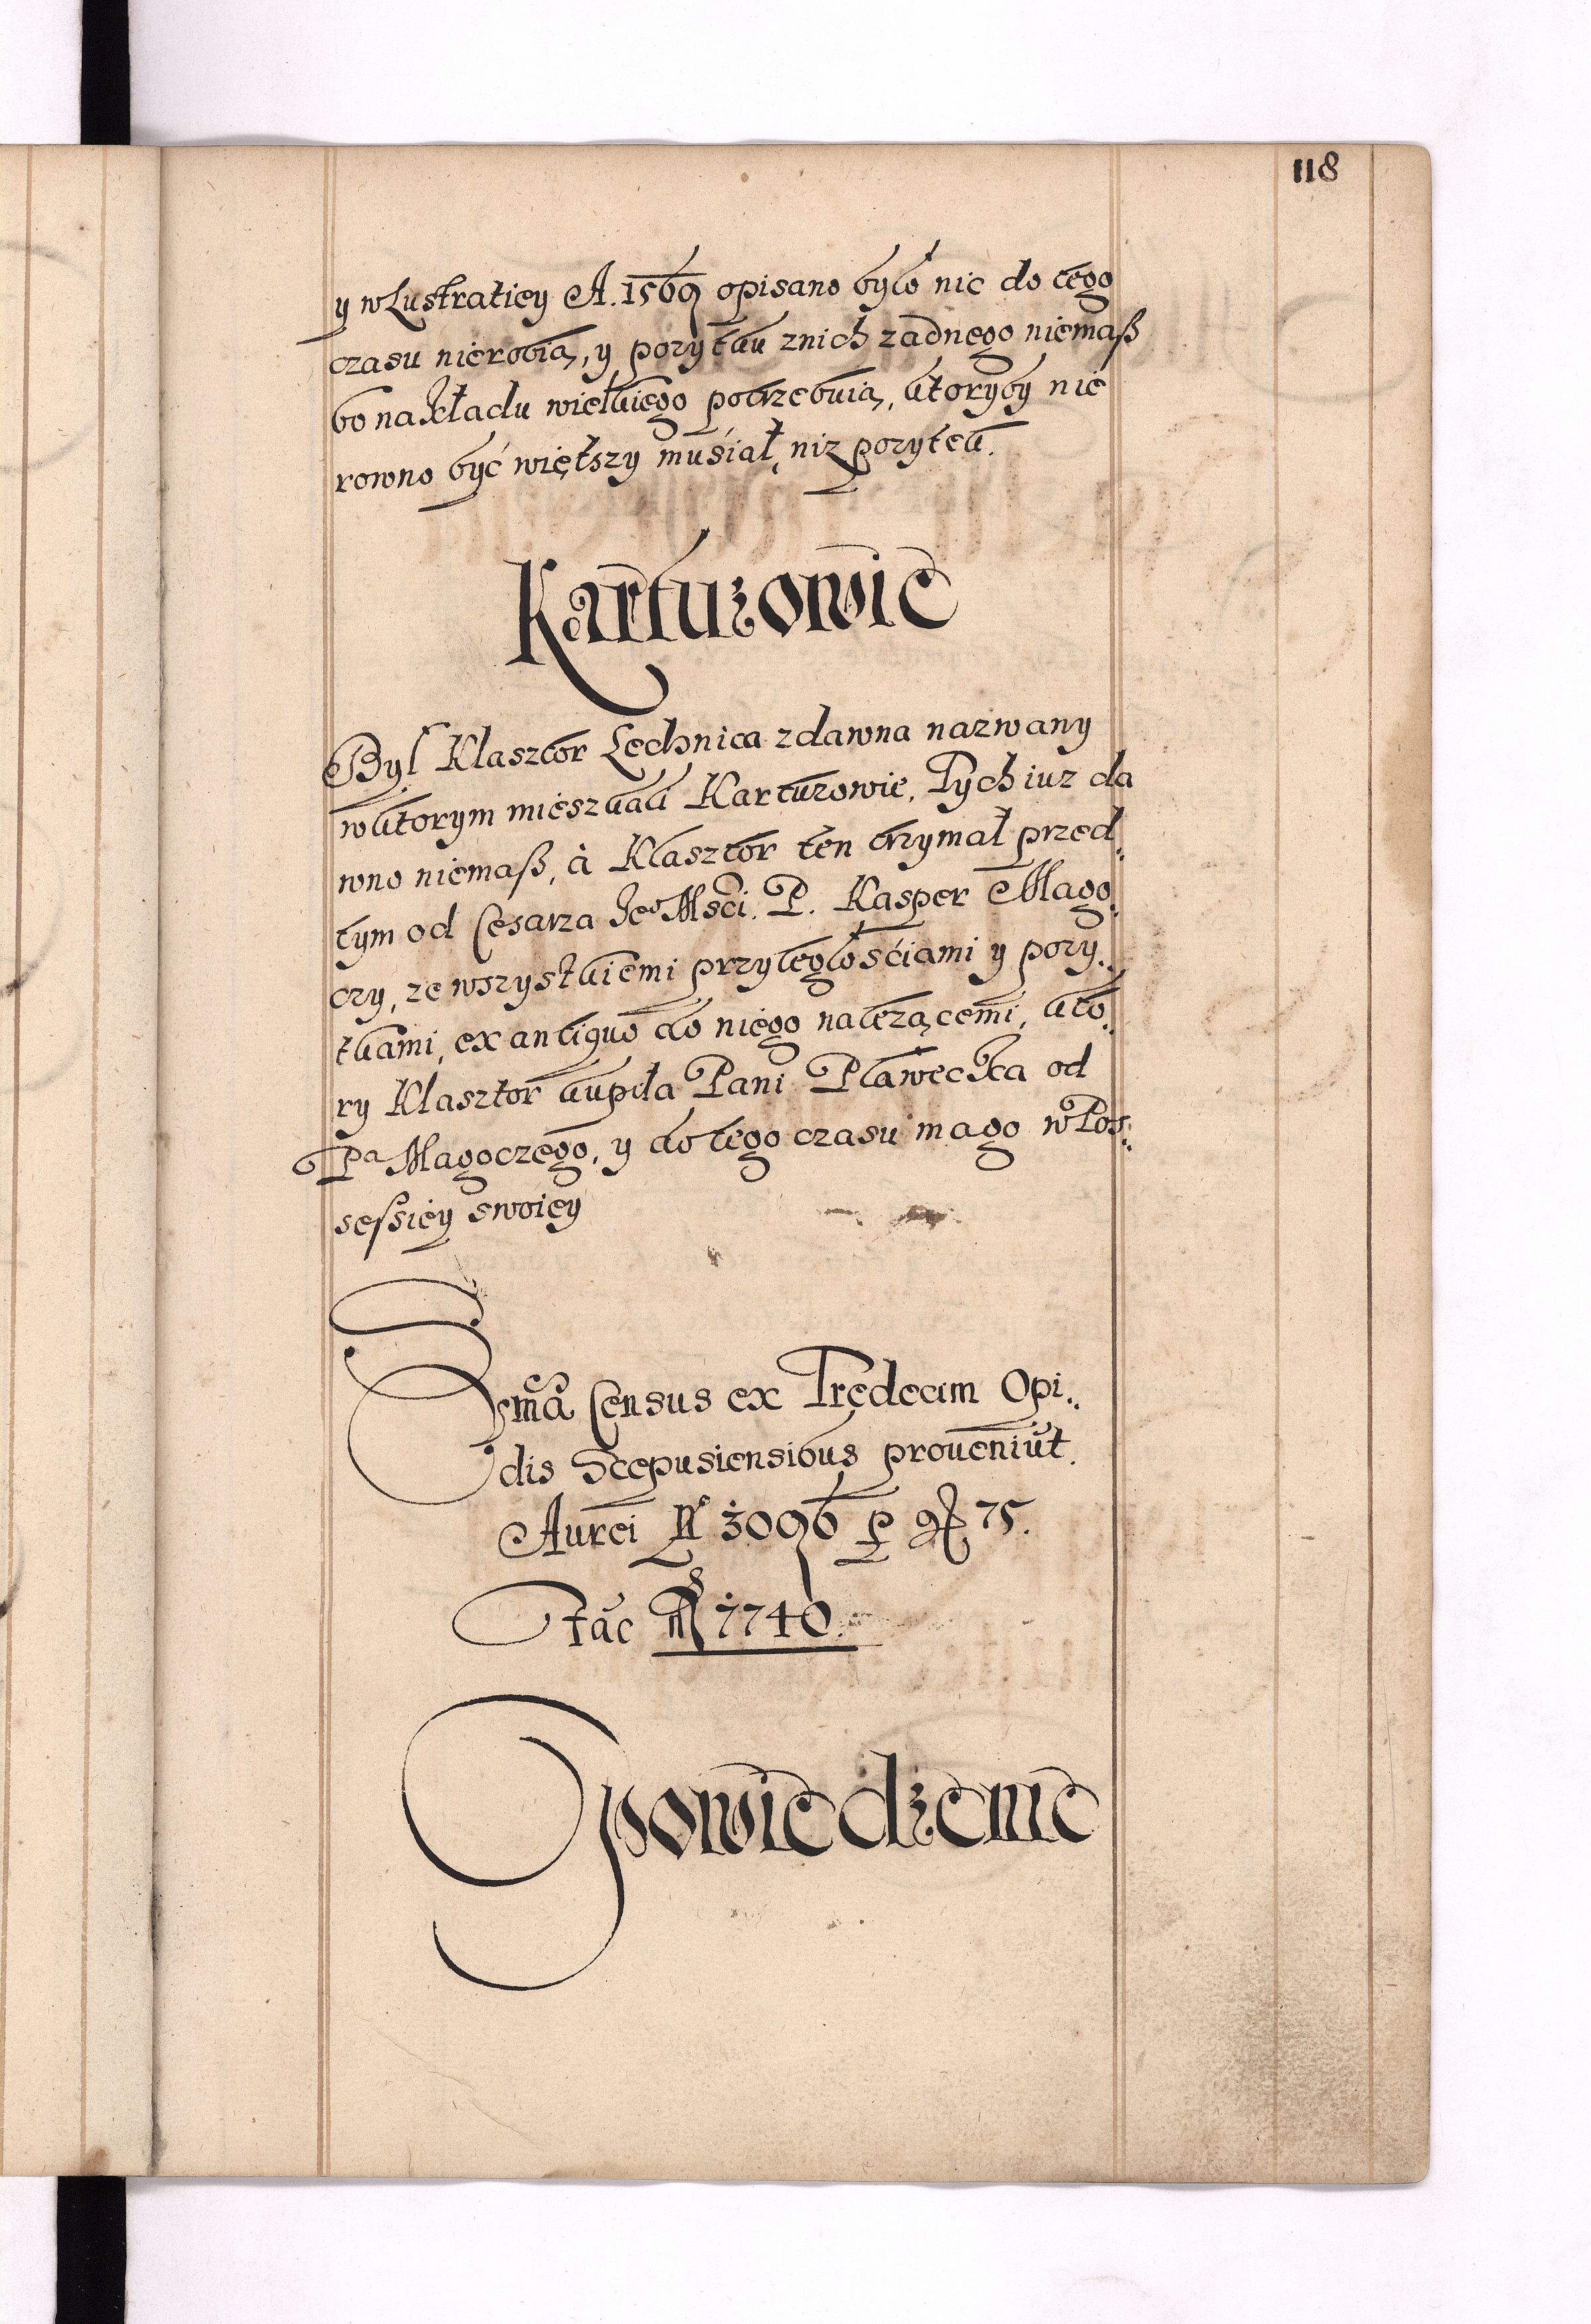 118
y w Lustratiey A. 1569 opisano było nic do tego
czasu nierobią, y pożytku z nich żadnego niemaß
bo nakładu wielkiego potrzebuią, ktoryby nie
rowno być większy musiał, niz pozytek.
Kartuzowie
Był Klasztor Lechnica zdawna nazwany
w ktorym mieszkali Kartuzowie, Tych iuz da
wno niemaß, à Klasztor ten trzymał przed„
tym od Cesarza Jeo Msci. P. Kasper Mago„
czy, ze wszystkiemi przyległościami y pozy„
tkami, ex antiquo do niego nalezącemi, kto„
ry Klasztor kupiła Pani Pławecka od
Pa Magoczego, y do tego czasu mago w Pos„
sessiey swoiey
Sma Census ex Tredecim Opi„
dis Scepusiensibus proueniut.
Aurei 3096 p 75.
fac 7740.
Opowiedzenie